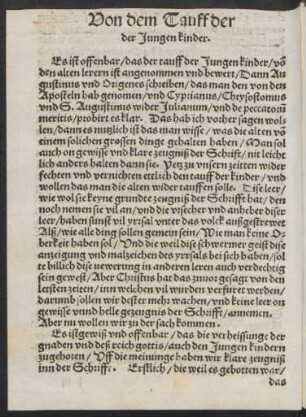 Von dem Tauff der
der Jungen kinder.
Es ist offenbar/das der tauff der Jungen kinder/võ
den alten lerern ist angenommen vnd bewert/Dann Au
gustinus vnd Origenes schreiben/das man den von den
Aposteln hab genomen/vnd Cyprianus/Chrysostomus
vnd S. Augustinus wider Julianum/vnd de peccatorũ
meritis/probirt es klar. Das hab ich vorher sagen wol⸗
len/dann es nutzlich ist das man wisse/was die alten võ
einem solichen grossen dinge gehalten haben/Man sol
auch on gewisse vnd klare zeugnüß der Schrifft/nit leicht
lich anders halten dann sie. Yetz zu vnsern zeitten wider
fechten vnd vernichten ettlich den tauff der kinder/vnd
wollen das man die alten wider tauffen solle. Dise leer/
wie wol sie keyne grundte zeugnüß der Schrifft hat/den
noch nemen sie vil an/vnd die vrsecher vnd anheber diser
leer/haben sunst vil yrsal vnter das volck außgestrewet
Alß/wie alle ding sollen gemein sein/Wie man keine Ob
berkeit haben sol/Vnd die weil dise schwermer geist dise
anzeigung vnd malzeichen des yrsals bei sich haben/sol
te billich dise newerung in anderen leren auch verdechtig
sein gewest/Aber Christus hat das zuuor gesagt von den
letsten zeiten/inn welchen vil wurden verfüret werden/
darumb sollen wir dester mehr wachen/vnd keine leer on
gewisse vnnd helle gezeugnis der Schrifft/annemen.
Aber nu wollen wir zu der sach kommen.
Es ist gewiß vnd offenbar/das die verheissunge der
gnaden vnd deß reich gottis/auch den Jungen kindern
zugehoren/Vff die meinunge haben wir klare zeugniß
inn der Schrifft. Erstlich/die weil es gebotten war/
das